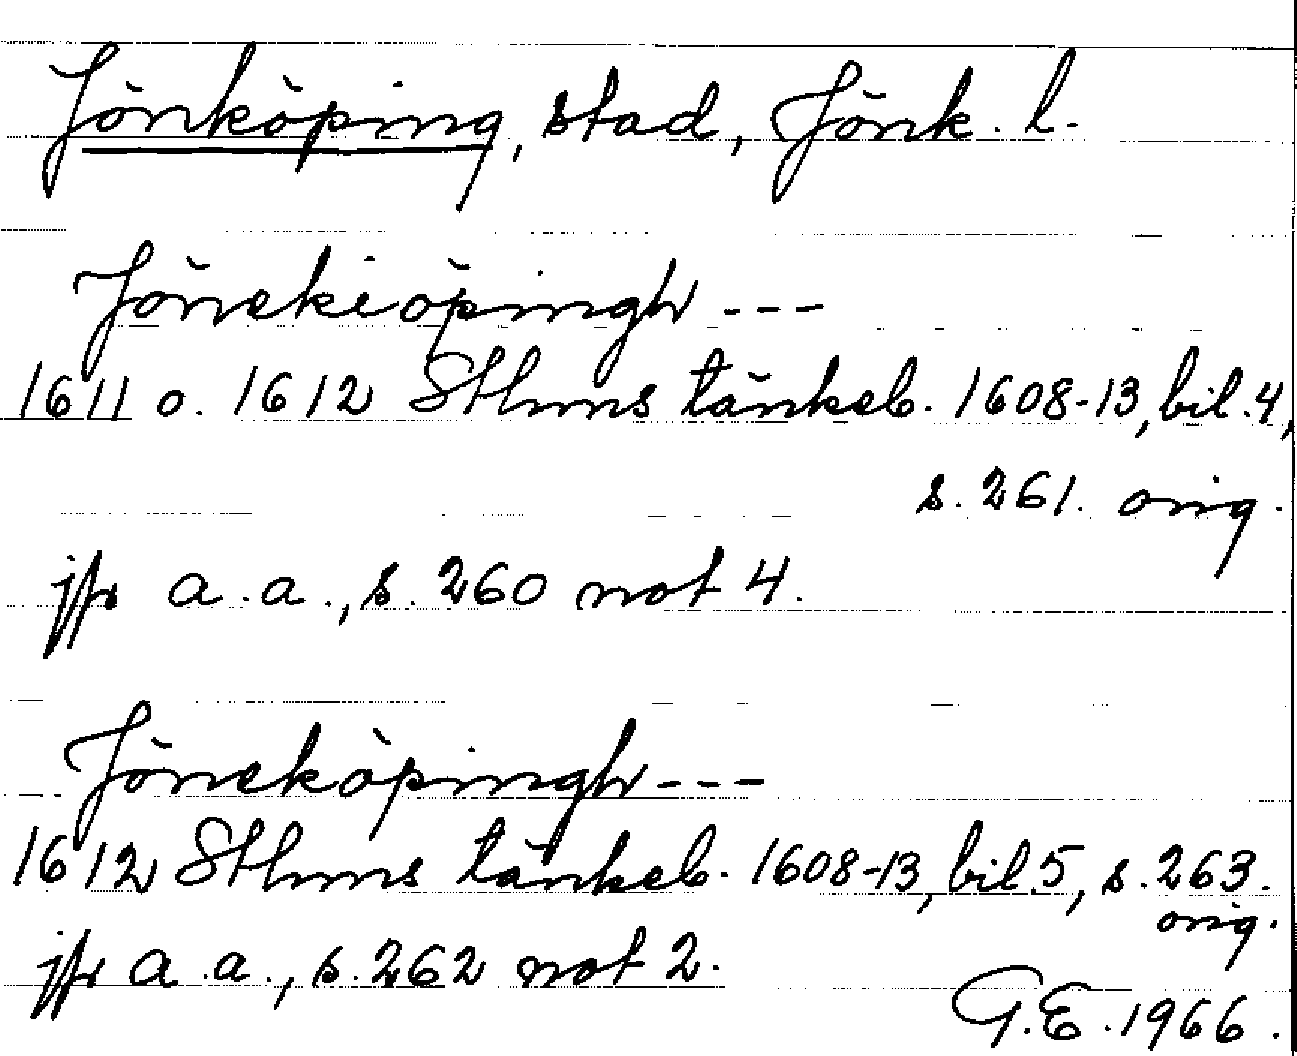 Jönköping, stad, Jönk. l.
Jönekiöpingh ---
1611 o. 1612 Sthms tänkeb. 1608-13, bil. 4,
s. 261. orig.
jfr a.a., s. 260 not 4.
Jöneköpingh ---
1612 Sthms tänkeb. 1608-13, bil. 5, s. 263.
orig.
jfr a.a., s. 262 not 2.
G.E. 1966.